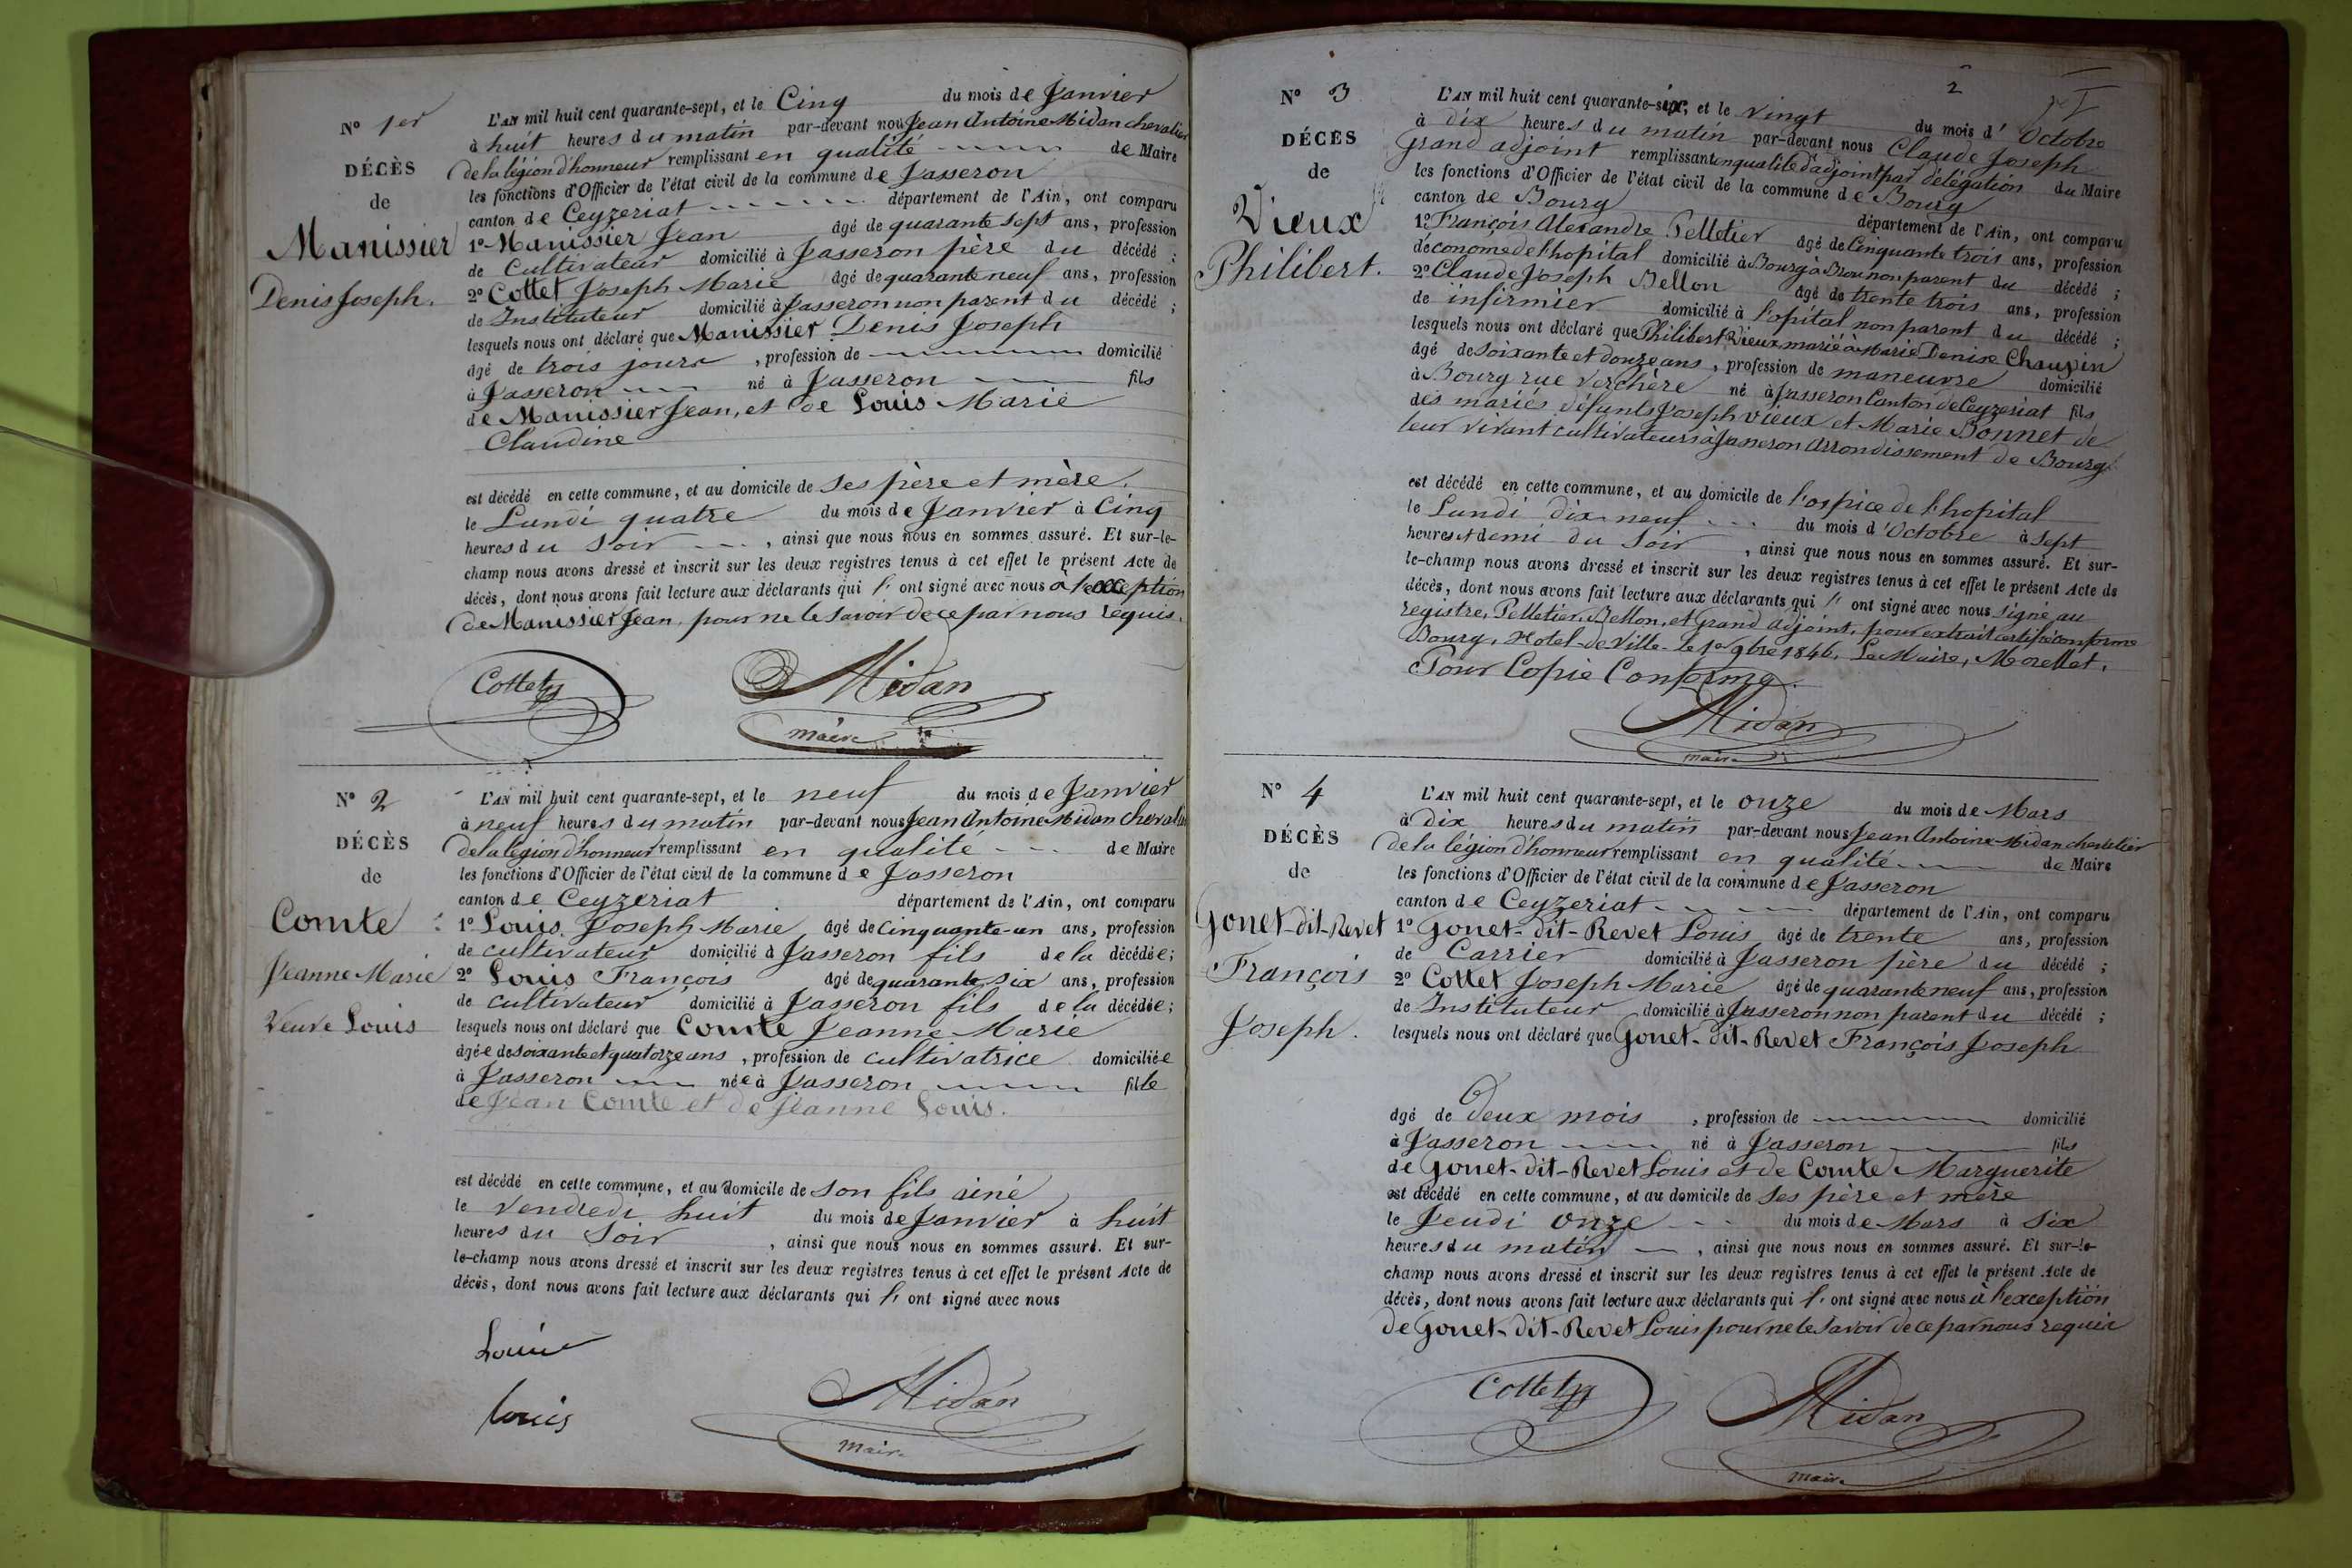 N° 1er
DÉCÈS
de
Manissier
Denis Joseph.
L'AN mil huit cent quarante-sept, et le Cinq du mois de Janvier
à huit heures du matin par-devant nous Jean Antoine Midan chevalier
de la légion d'honneur remplissant en qualité de Maire
les fonctions d'Officier de l'état civil de la commune de Jasseron
canton de Ceyzeriat département de l'Ain, ont comparu
1° Manissier Jean âgé de quarante sept ans, profession
de Cultivateur domicilié à Jasseron père du décédé ;
2° Cottet Joseph Marie âgé de quarante neuf ans, profession
de Instituteur domicilié à Jasseron non parent du décédé ;
lesquels nous ont déclaré que Manissier Denis Joseph
âgé de trois jours , profession de domicilié
à Jasseron né à Jasseron fils
de Manissier Jean, et de Louis Marie
Claudine
est décédé en cette commune, et au domicile de ses père et mère.
le Lundi quatre du mois de Janvier à Cinq
heures du Soir , ainsi que nous nous en sommes assuré. Et sur-le-
champ nous avons dressé et inscrit sur les deux registres tenus à cet effet le présent Acte de
décès, dont nous avons fait lecture aux déclarants qui l' ont signé avec nous à l'exception
de Manissier Jean, pour ne le savoir de ce par nous requis.
Cottet
Midan
maire
N° 2
DÉCÈS
de
Comte
Jeanne Marie
Veuve Louis
L'AN mil huit cent quarante-sept, et le neuf du mois de Janvier
à neuf heures du matin par-devant nous Jean Antoine Midan Chevalier
de la légion d'honneur remplissant en qualité de Maire
les fonctions d'Officier de l'état civil de la commune de Jasseron
canton de Ceyzeriat département de l'Ain, ont comparu
1° Louis Joseph Marie âgé de Cinquante-un ans, profession
de cultivateur domicilié à Jasseron fils de la décédée;
2° Louis François âgé de quarante six ans, profession
de cultivateur domicilié à Jasseron fils de la décédée;
lesquels nous ont déclaré que Comte Jeanne Marie
âgée de soixante et quatorze ans , profession de cultivatrice domiciliée
à Jasseron née à Jasseron fille
de Jean Comte et de Jeanne Louis.
est décédé en cette commune, et au domicile de son fils ainé
le Vendredi huit du mois de Janvier à huit
heures du Soir , ainsi que nous nous en sommes assuré. Et sur-
le-champ nous avons dressé et inscrit sur les deux registres tenus à cet effet le présent Acte de
décès, dont nous avons fait lecture aux déclarants qui l' ont signé avec nous
Louis
Louis
Midan
maire
2
N° 3
DÉCÈS
de
Vieux
Philibert.
L'AN mil huit cent quarante-six, et le vingt du mois d' Octobre
à dix heures du matin par-devant nous Claude Joseph
Grand adjoint remplissant en qualité d'adjoint par délégation du Maire
les fonctions d'Officier de l'état civil de la commune de Bourg
canton de Bourg département de l'Ain, ont comparu
1° François Alexandre Pelletier âgé de Cinquante trois ans, profession
d'économe de l'hopital domicilié à Bourg à Brou non parent du décédé ;
2° Claude Joseph Bellon âgé de trente trois ans, profession
de infirmier domicilié à l'opital non parent du décédé ;
lesquels nous ont déclaré que Philibert Vieux, marié à Marie Denise Chaupin
âgé de soixante et douze ans , profession de maneuvre domicilié
à Bourg rue Verchère né à Jasseron Canton de Ceyzeriat fils
des mariés défunts Joseph vieux et Marie Bonnet de
leur vivant cultivateurs à Jasseron Arrondissement de Bourg.
est décédé en cette commune, et au domicile de l'ospice de l'hopital
le Lundi dix-neuf du mois d'Octobre à sept
heures et demi du Soir , ainsi que nous nous en sommes assuré. Et sur-
le-champ nous avons dressé et inscrit sur les deux registres tenus à cet effet le présent Acte de
décès, dont nous avons fait lecture aux déclarants qui l' ont signé avec nous Signé au
registre, Pelletier, Bellon, et Grand adjoint, pour extrait certifié conforme
Bourg, Hotel-de-Ville le 1er 9bre 1846, Le Maire, Morellet,
Pour Copie Conforme.
Midan
maire
N° 4
DÉCÈS
de
Gonet-dit-Revet
François
Joseph.
L'AN mil huit cent quarante-sept, et le onze du mois de Mars
à dix heures du matin par-devant nous Jean Antoine Midan chevalier
de la légion d'honneur remplissant en qualité de Maire
les fonctions d'Officier de l'état civil de la commune de Jasseron
canton de Ceyzeriat département de l'Ain, ont comparu
1° Gonet-dit-Revet Louis âgé de trente ans, profession
de Carrier domicilié à Jasseron père du décédé ;
2° Cottet Joseph Marie âgé de quarante neuf ans, profession
de Instituteur domicilié à Jasseron non parent du décédé ;
lesquels nous ont déclaré que Gonet-dit-Revet François Joseph
âgé de Deux mois , profession de domicilié
à Jasseron né à Jasseron fils
de Gonet-dit-Revet Louis et de Comte Marguerite
est décédé en cette commune, et au domicile de ses père et mère
le Jeudi onze du mois de Mars à Six
heures du matin , ainsi que nous nous en sommes assuré. Et sur-le-
champ nous avons dressé et inscrit sur les deux registres tenus à cet effet le présent Acte de
décès, dont nous avons fait lecture aux déclarants qui l' ont signé avec nous à l'exception
de Gonet-dit-Revet Louis pour ne le savoir de ce par nous requis
Cottet
Midan
maire